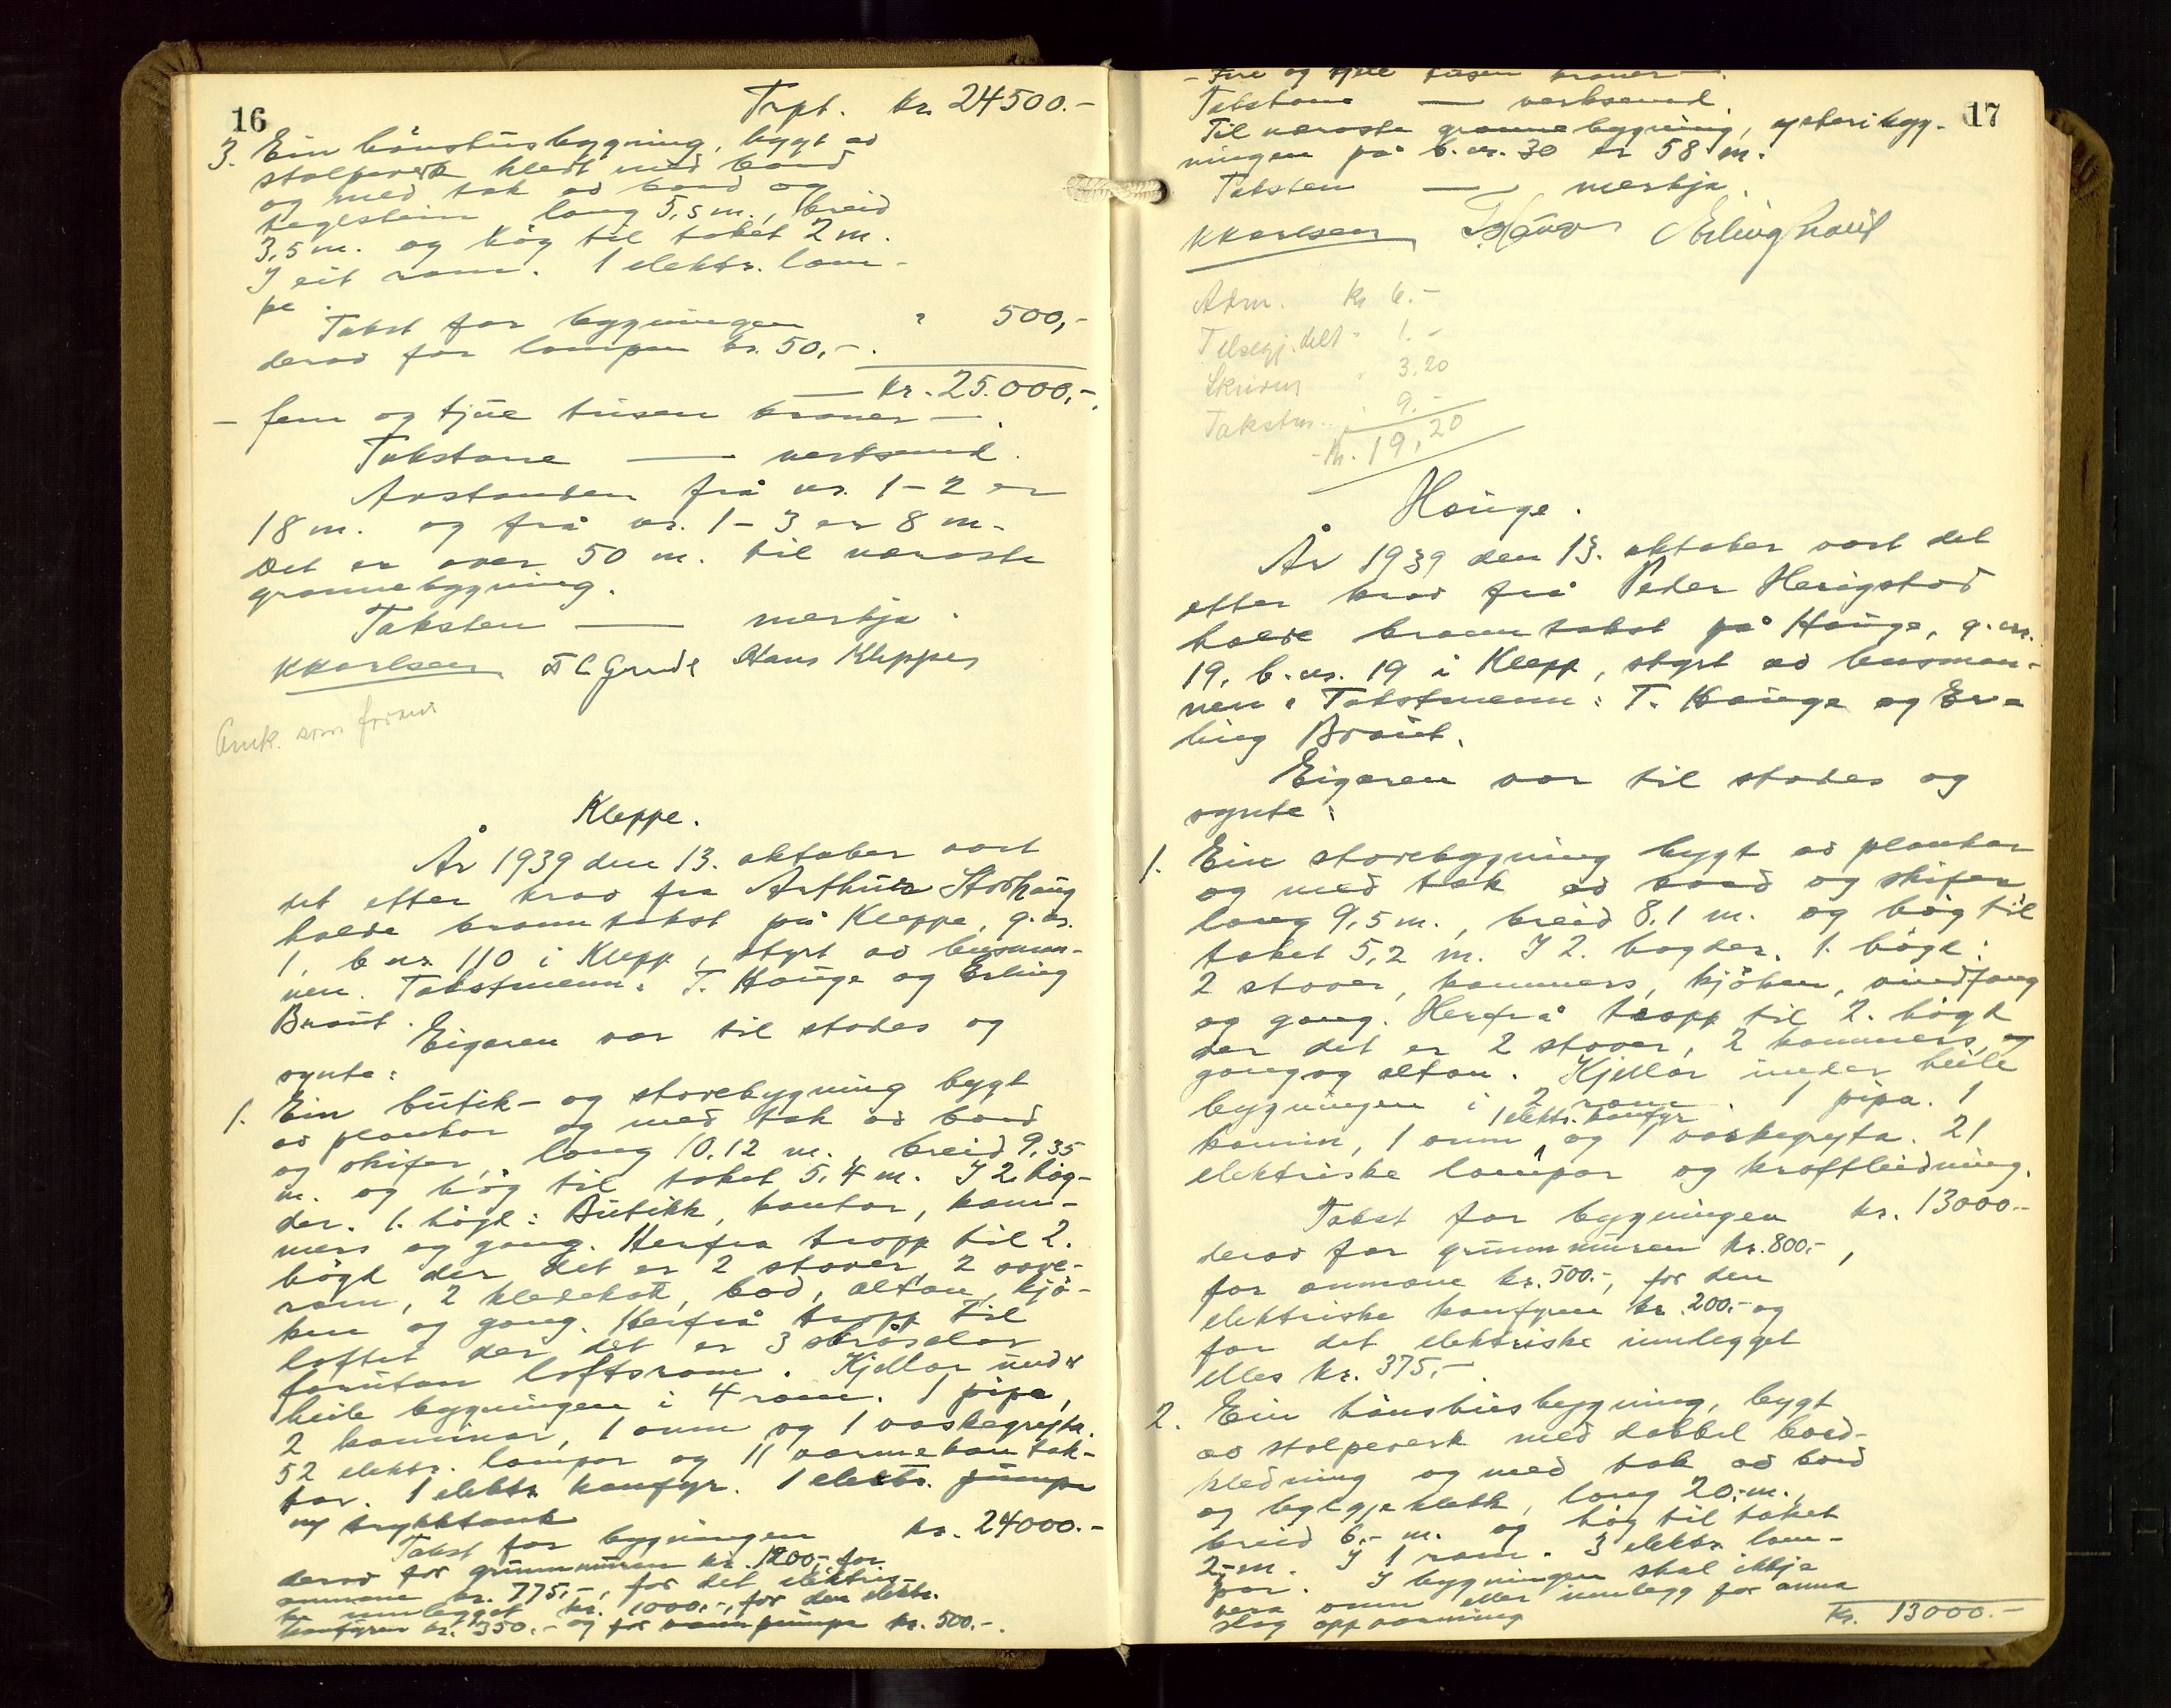 16
Trpt. kr. 24500.-
3. Ein hönsehusbygning, bygt av
stolpeverk kledt med bord
og med tak av bord og
teglstein lang 5,5 m., breid
3,5 m. og høg til taket 2 m.
I eit rom. 1 elektr. lam-
pe.
Takst for bygningen " 500,-
derav for lampen kr. 50,-.
— kr. 25.000,-.
- fem og tjue tusen kroner -.
Takstane — verksemd.
Avstanden frå nr. 1-2 er
18 m. og frå nr. 1-3 er 8 m.
Det er over 50 m. til næraste
grannebygning.
Taksten — merkja.
KKarlsen Hans Kleppe
Amk. som foran
Kleppe.
År 1939 den 13. oktober vart
det etter krav fra Arthur Stokhaug
halde branntakst på Kleppe, g.nr.
1, b.nr. 110 i Klepp, styrt av lensman-
nen. Takstmenn: T. Hauge og Erling
Braut.
Eigaren var til stades og
synte:
1. Ein butik- og stovebygning bygt
av plankar og med tak av bord
og skifer, lang 10,12 m., breid 9,35
m. og høg til taket 5,4 m. I 2 høg-
der. 1. høgd: Butikk, kontor, kam-
mers og gang. Herfra tropp til 2.
høgd der det er 2 stover, 2 sove-
rom, 2 kledekott, bod, altan, kjø-
ken og gang. Herfrå tropp til
loftet der det er 3
forutan loftsrom. Kjellar under
heile bygningen i 4 rom. 1 pipe,
2 kaminar, 1 omn og 1 vaskegryta.
52 elektr. lampor og 11 varmekontak-
tar. 1 elektr. komfyr. 1 elektr. pumpe
m/ trykktank
Takst for bygningen kr. 24000.-
derav for grunnmuren kr. 1200,- for
omnane kr. 775,-, for det elektris-
ke innlegget kr. 1000,-, for den elektr.
komfyren kr. 350.- og for vannpumpe kr. 500.-.
17
- Fire og tjue tusen kroner -.
Takstane — verksemd.
Til næraste grannebygning, ysteribyg-
ningen på b.nr. 30 er 58 m.
Taksten — merkja.
KKarlsen T Hauge Erling Braut
Adm. kr 6.-
Tilsegj. delt " 1.-
Skrivm " 3.20
Takstm. " 9.-
Kr. 19,20
Hauge.
År 1939 den 13. oktober vart det
etter krav frå Peder Herigstad
halde branntakst på Hauge, g.nr.
19, b.nr. 19 i Klepp, styrt av lensman-
nen. Takstmenn: T. Hauge og Er-
ling Braut.
Eigaren var til stades og
synte:
1. Ein stovebygning bygt av plankar
og med tak av bord og skifer
lang 9,5 m., breid 8,1 m. og høg til
taket 5,2 m. I 2. høgder. 1. høgd:
2 stover, kammers, kjøken, vindfang
og gang. Herfrå tropp til 2. høgd
der det er 2 stover, 2 kammers, og
gang og altan. Kjellar under heile
bygningen i 2 rom. 1 pipa. 1
1 elektr. komfyr
kamin, 1 omn, og 1 vaskegryta. 21
elektriske lampor og kraftleidning.
Takst for bygningen kr. 13000.-
derav for grunnmuren kr. 800,-,
for omnane kr. 500.-, for den
elektriske komfyren kr. 200.- og
for det elektriske innlegget
elles kr. 375,-.
2. Ein hönsehusbygning, bygt
av stolpeverk med dobbel bord-
kledning og med tak av bord
og bylgjeblekk, lang 20,- m.,
breid 6,- m. og høg til taket
2,- m. I 1 rom. 3 elektr. lam-
par. I bygningen skal ikkje
vera omn eller innlegg for anna
slag oppvarming
Kr. 13000.-